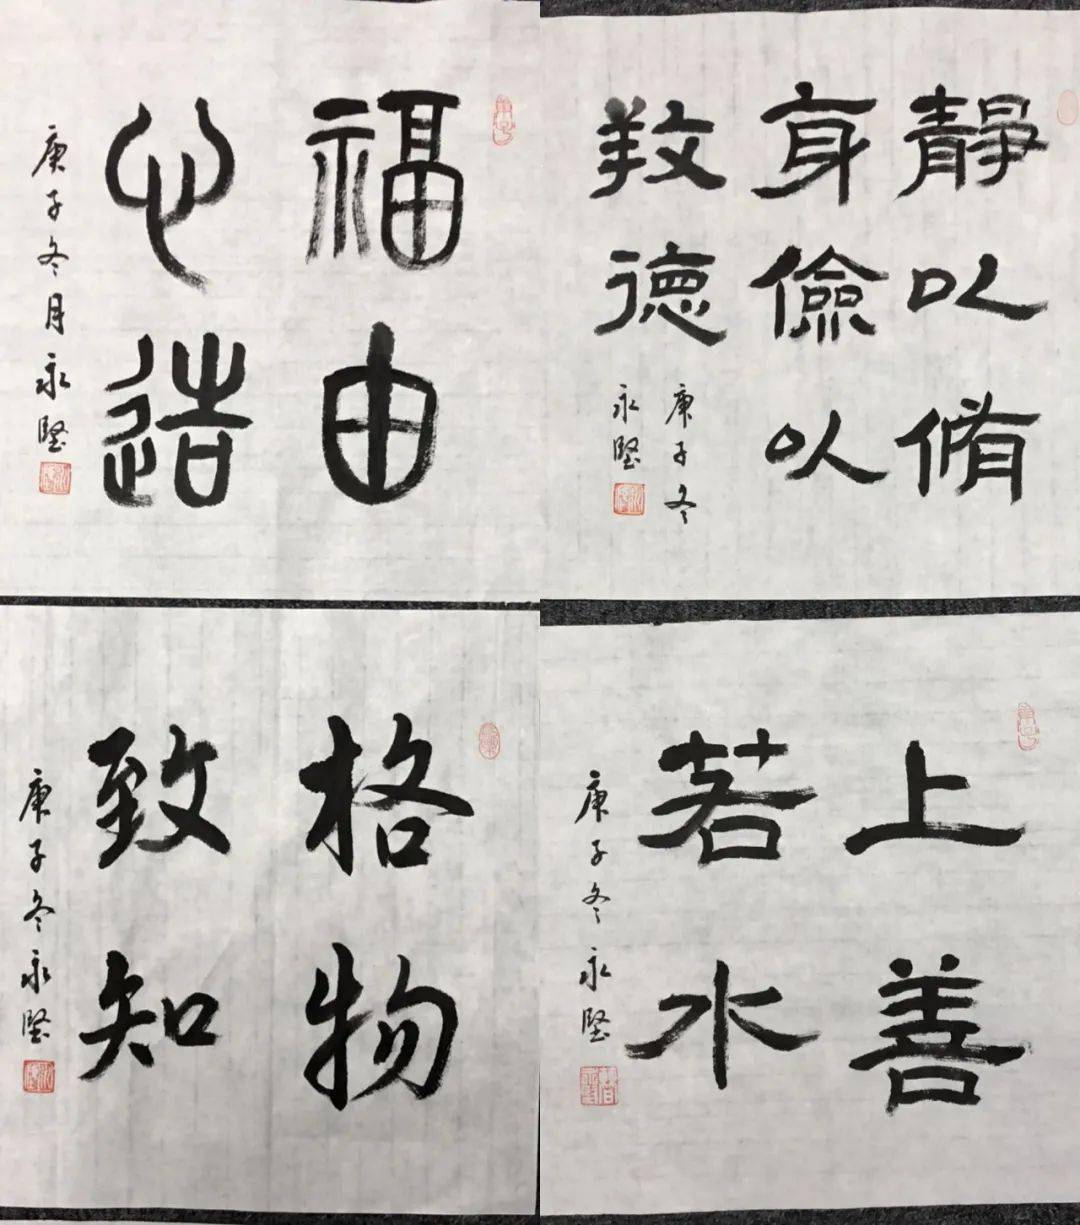 福由
心造
庚子冬月永坚
靜以脩
身儉以
养德
庚子冬
永坚
格物
致知
庚子冬永坚
上善
若水
庚子冬永坚